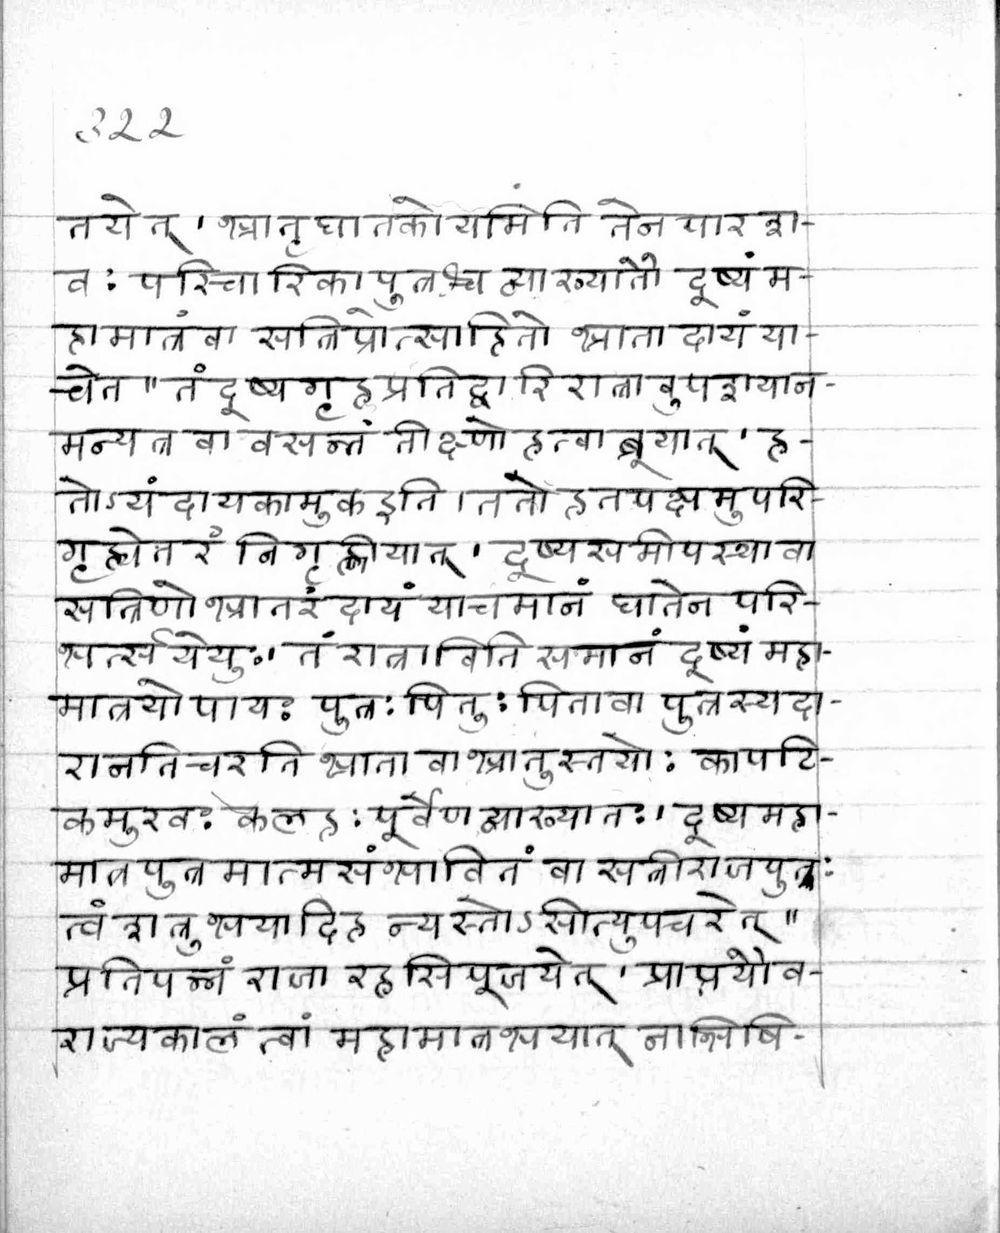 ३२२
तयेत् । भ्रातृघातकोयमिति तेन पारश-
वः परिचारिकापुत्रश्च व्याख्यातौ दूष्यं म-
हामात्रं वा सत्रिप्रोत्साहितो भ्राता दायं या-
चेत ॥ तं दूष्यगृहप्रतिद्वारि रात्रावुपशयान-
मन्यत्र वा वसन्तं तीक्ष्णो हत्वा ब्रूयात् । ह-
तोऽयं दायकामुक इति । ततो हतपक्षमुपरि-
गृह्येतरं निगृह्णीयात् । दूष्यसमीपस्था वा
सत्रिणो भ्रातरं दायं याचमानं घातेन परि-
भर्त्सयेयुः । तं रात्राविति समानं दूष्यं महा-
मात्रयोपायः पुत्रः पितुः पिता वा पुत्रस्य दा-
रानतिचरति भ्राता वा भ्रातुस्तयोः कापटि-
कमुखः कलहः पूर्वेण व्याख्यातः । दूष्यमहा-
मात्रपुत्रमात्मसंभावितं वा सत्री राजपुत्रः
त्वं शत्रुभयादिह न्यस्तोऽसीत्युपचरेत् ॥
प्रतिपन्नं राजा रहसि पूजयेत् । प्राप्तयौव-
राज्यकालं त्वां महामात्रभयात् नाभिषि-